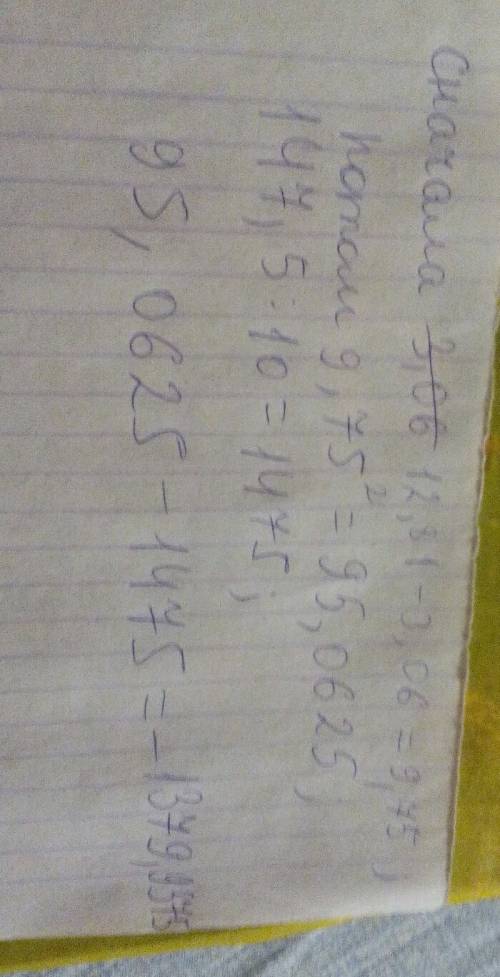 сначала 3,06 12,81-3,06=9,75,
потом 9,75²=95,0625;
147,5:10=1475;
95,0625-1475=-1379,9375